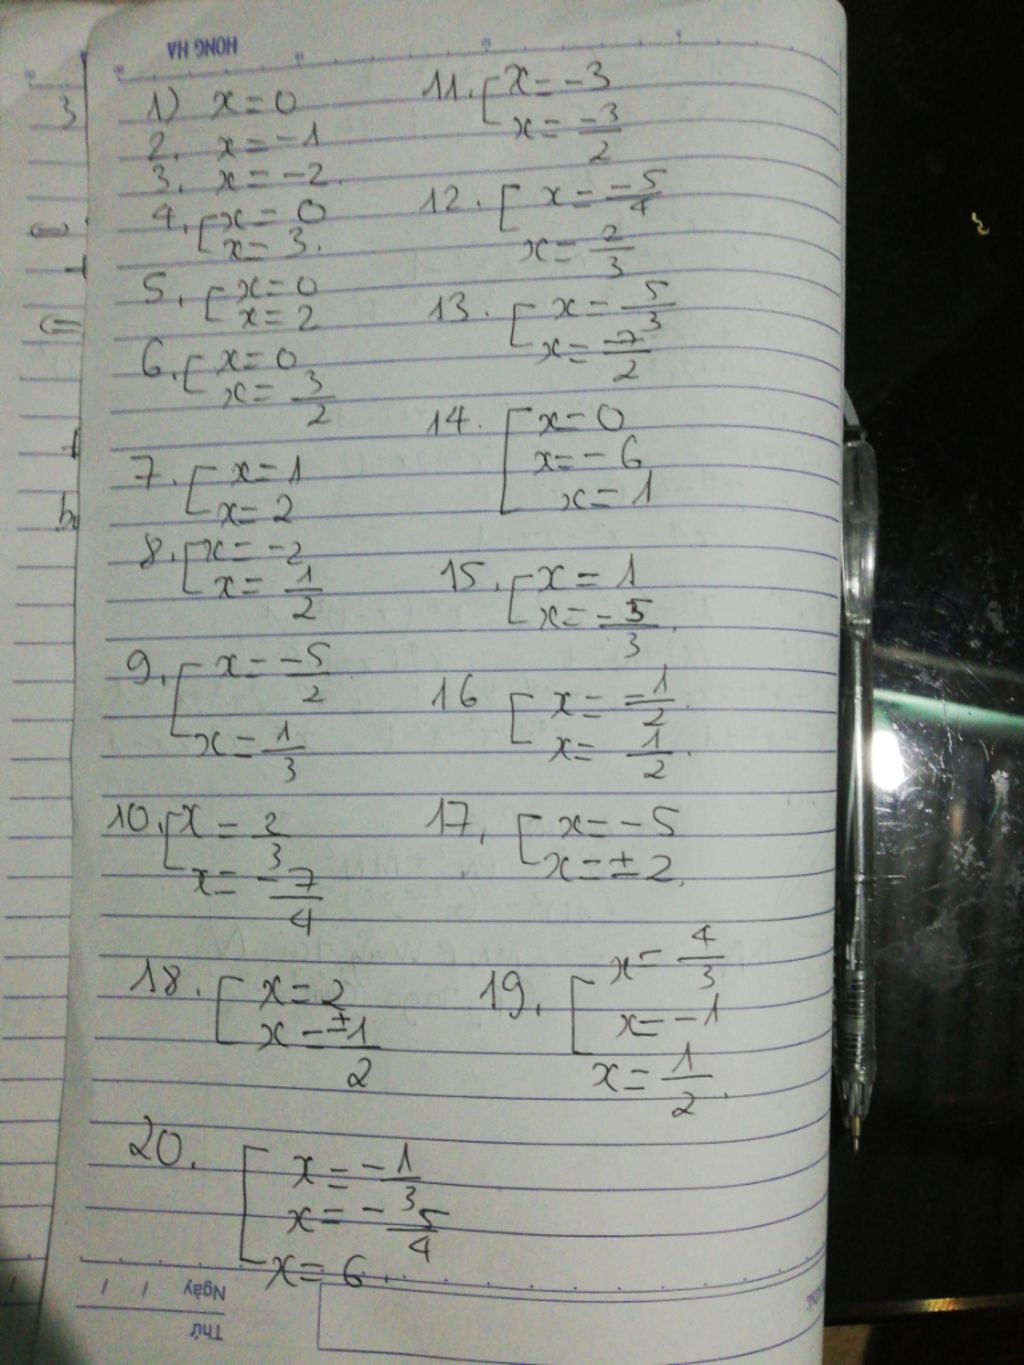 HONG HA
1) x = 0
2. x = -1
3. x = -2.
4. [ x = 0
x = 3.
5. [ x = 0
x = 2
6. [ x = 0
x = 3/2
7. [ x = 1
x = 2
8. [ x = -2
x = 1/2
9. [ x = -5/2
x = 1/3
10. [ x = 2/3
x = -7/4
11. [ x = -3
x = -3/2
12. [ x = -5/4
x = 2/3
13. [ x = 5/3
x = -7/2
14. [ x = 0
x = -6
x = 1
15. [ x = 1
x = -5/3.
16 [ x = -1/2.
x = 1/2.
17. [ x = -5
x = ±2.
18. [ x = 2
x = ±1/2
19. [ x = 4/3
x = -1
x = 1/2.
20. [ x = -1/3
x = -5/4
x = 6.
Ngày / /
Thứ
3
b